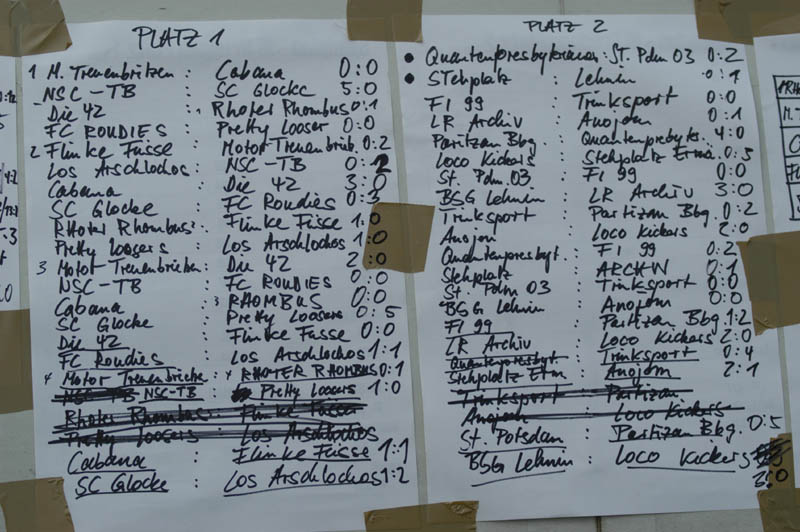 PLATZ 1
1 M. Treuenbritzen : Cabana 0:0
NSC-TB : SC Glocke 5:0
Die 42 : Rhoter Rhombus 0:1
FC ROUDIES : Pretty Looser 0:0
2 Flinke Füsse : Motor-Treuenbrieb. 0:2
Los Arschlochos : NSC-TB 0:2
Cabana : Die 42 3:0
SC Glocke : FC Roudies 0:3
RHoter Rhombus : Flinke Füsse 1:0
Pretty Loosers : Los Arschlochos 1:0
3 Motor Treuenbrieben : Die 42 2:0
NSC-TB : FC ROUDIES 0:0
Cabana : RHOMBUS 0:0
SC Glocke : Pretty Loosers 0:5
Die 42 : Flinke Füsse 0:0
FC Roudies : Los Arschlochos 1:1
4 Motor Treuenbriebe : RHOTER RHOMBUS 0:1
NSC-TB : Pretty Loosers 1:0
Rhoter Rhombus : Flinke Füsse
Pretty Loosers : Los Arschlochos
Cabana : Flinke Füsse 1:1
SC Glocke : Los Arschlochos 1:2
PLATZ 2
• Quantenpresbyterianer : ST. Pdm 03 0:2
• STehplatz : Lehnin 0:1
F1 99 : Trinksport 0:0
LR Archiv : Anojom 0:1
Paritzan Bbg : Quantenpresbyt. 4:0
Loco Kickers : Stehplatz Etm. 0:5
St. Pdm. 03 : F1 99 0:0
BSG Lehnin : LR Archiv 3:0
Trinksport : Partizan Bbg. 0:2
Anojom : Loco Kickers 2:0
Quantenpresbyt. : F1 99 0:2
Stehplatz : ARCHIV 0:1
St. Pdm 03 : Trinksport 0:0
BSG Lehnin : Anojom 0:0
F1 99 : Partizan Bbg 1:2
LR Archiv : Loco Kickers 2:0
Quantenpresbyt. : Trinksport 0:4
Stehplatz Etm : Anojom 2:1
Trinksport : Partizan
Anojom : Loco Kickers
St. Potsdam : Partizan Bbg. 0:5
BSG Lehnin : Loco Kickers
2:0